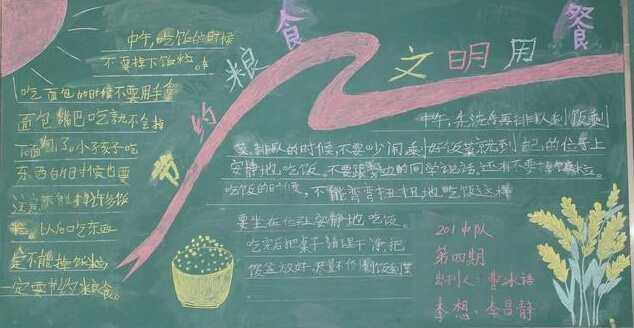 节约粮食 文明用餐
中午,吃饭的时候
不要掉下饭粒。
吃面包的时候不要用手拿
面包嘴巴吃就不会掉
下面了。小孩子吃
东西的时候也要
这这不能掉饭
粒。以后吃东西
定不能掉饭粒,
一定要节约粮食。
中午,先洗手再排队打饭剩
菜,排队的时候不要吵闹剩好饭菜就到自己的位子上
安静地吃饭,不要跟旁边的同学说话,还不要掉
吃饭的时候,不能弯弯扭扭地吃饭这样
要坐在位让安静地吃饭。
吃完后把桌子清理干净,把
饭盆放好
201中队
第四期
出刊人:曹冰语
李想、李昌静